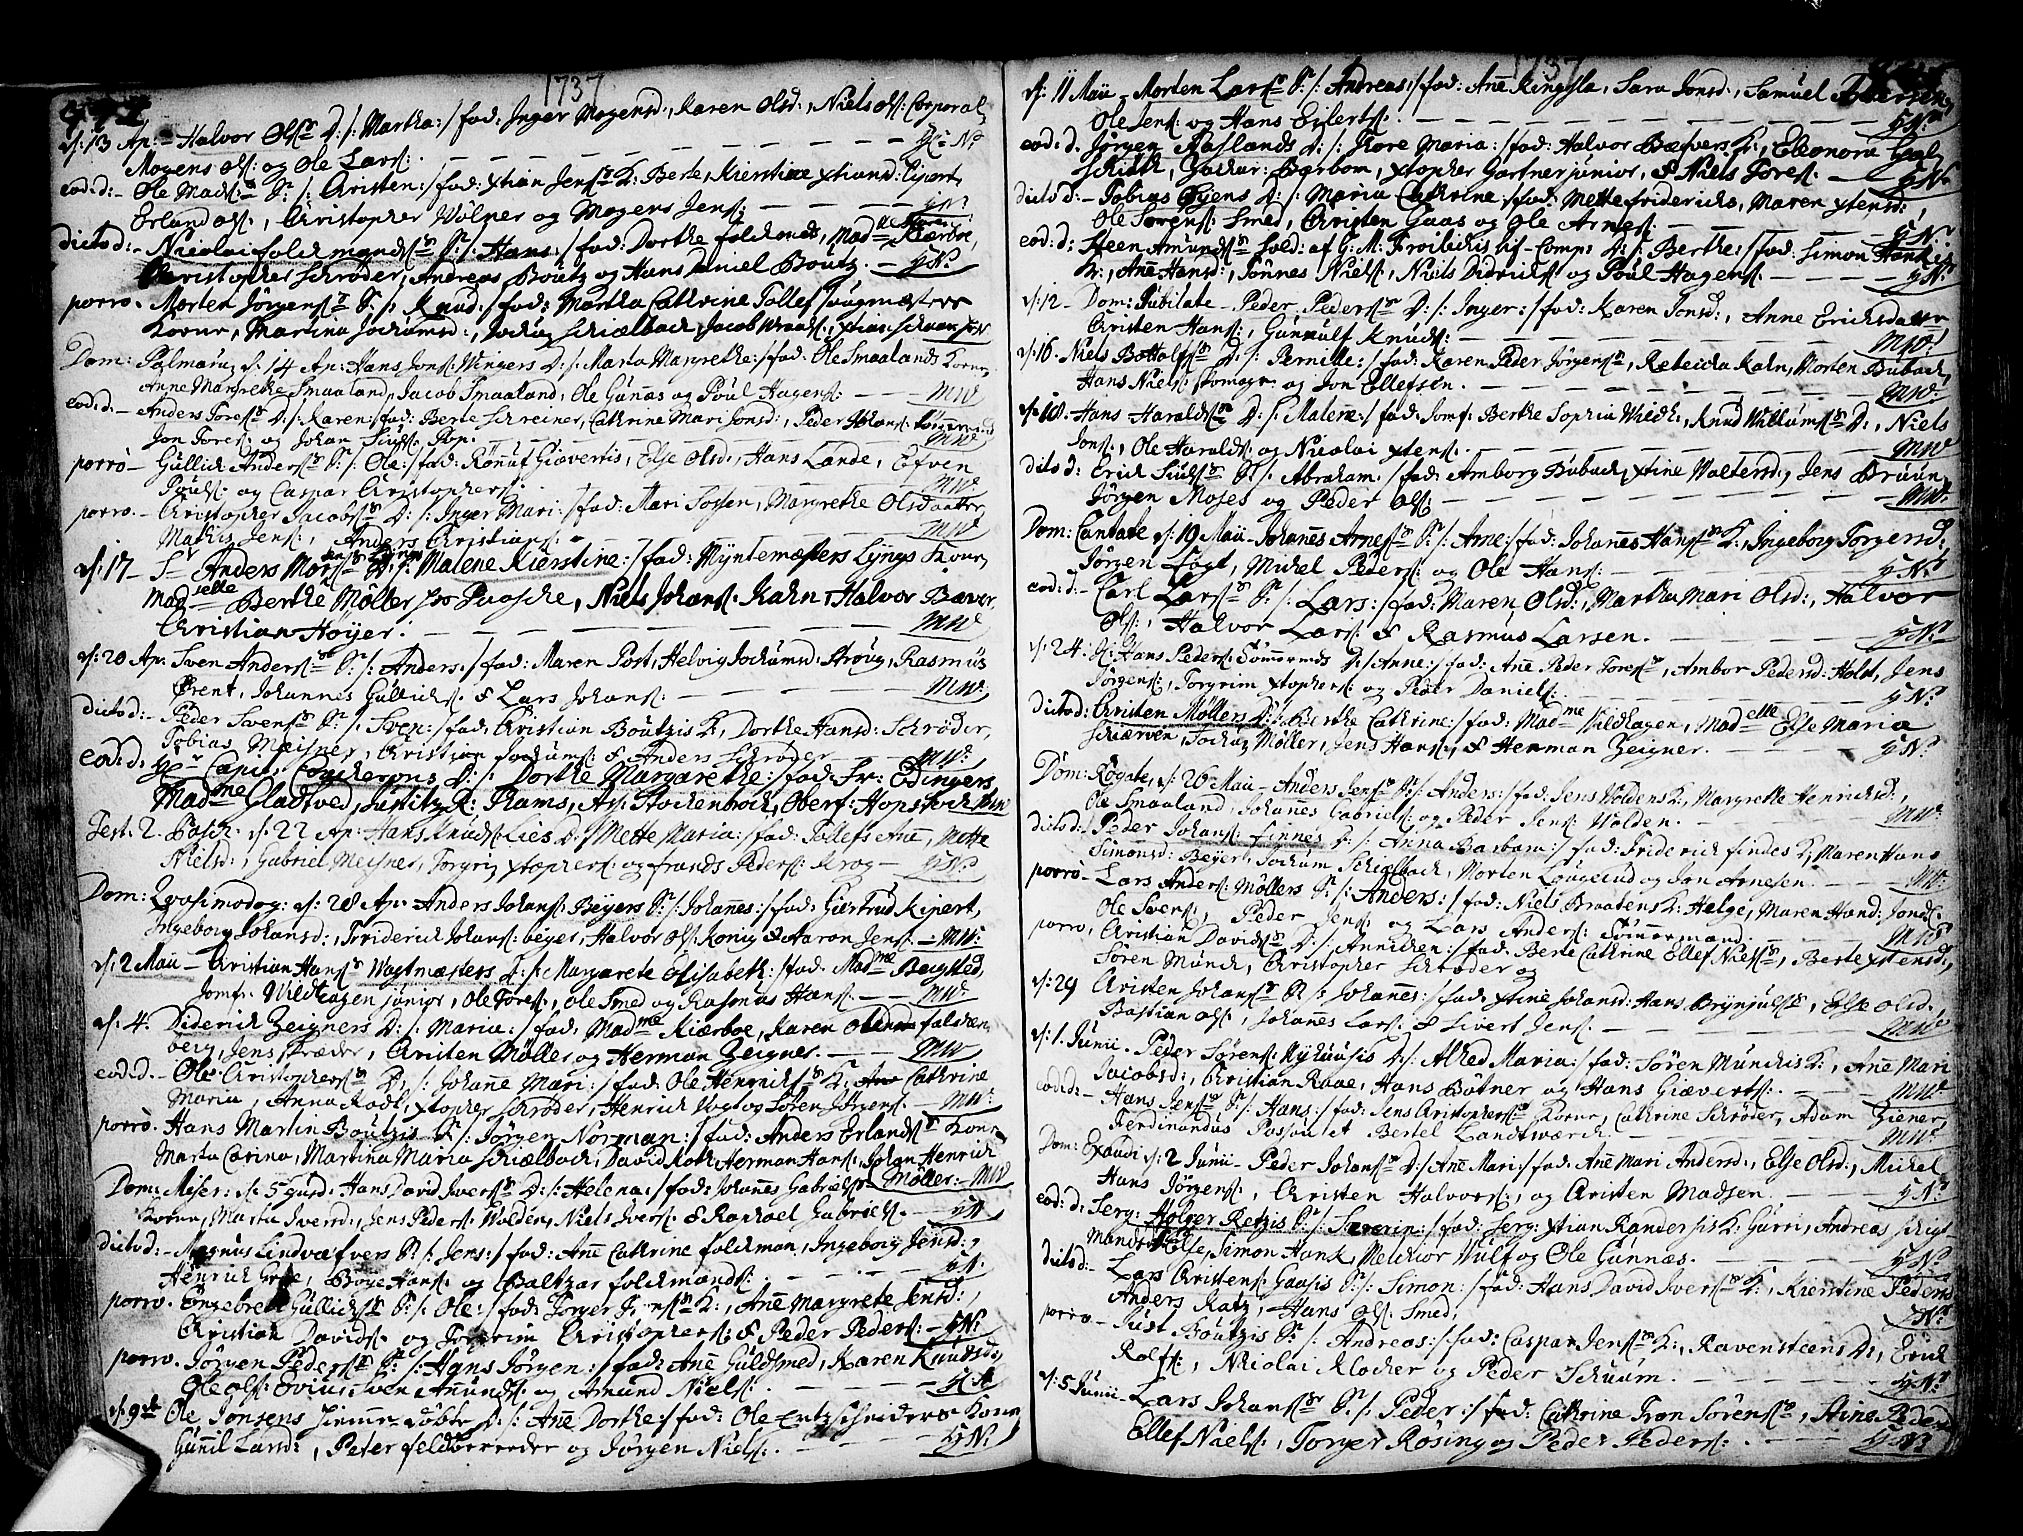 1737
d: 13 Ap: Halvor Olss: D: /: Martha :/ fad: Inger Mogensd:, Karen Olsd:, Niels Ols: Corporal,
Mogens Ols: og Ole Lars:
eod: d: Ole Mads: S: /: Christen :/ fad: Xtian Jens: K: Berte, Kierstine Xtiansd:
Erland Ols:, Christopher Völner og Mogens Jens:
dicto d: Nicolai folckmands: S: /: Hans :/ fad: Dorthe folckmands, Madlle Kiærboe,
Christopher Schrøder, Andreas Boutz og Hans Daniel Boutz.
porro. Morten Jörgens: S: /: Knud :/ fad: Martha Cathrine Tollefs
Kone, Martina Jochumsd:, Jochum Schiælbach, Jacob
Dom: Palmarum d: 14 Ap: Hans Jons: Wingers D: /: Marta Margretha :/ fad: Ole Smaalands Kone,
Anne Margrethe Smaaland, Jacob Smaaland, Ole Gunnes og Poul Hagens: MW
eod: d: Anders Tores: D: /: Karen :/ fad: Berte Schreiner, Cathrine Mari Jonsd:, Peder Johans:
Jon Tores: og Johan MW
porro Gullich Anders: S: /: Ole :/ fad: Rønnut Giævertis, Else Olsd:, Hans Lande, Eefven
Pouls: og Caspar Christophers: MW
porro. Christopher Jacobs: D: /: Inger Mari :/ fad: Mari Torsen, Margrethe Olsdaatter,
Mathis Jens:, Anders Christians: MW
d: 17 Sr Anders Mors: D: /: Malene Kierstine :/ fad: Myntemesters Lyngs Kone,
Madselle Berthe Møller, Niels Johans: Kahn, Halvor Bæver,
Christian Høyer. MW
d: 20 Ap: Sven Anders: S: /: Anders :/ fad: Maren Post, Helvig Jochumsd: Stroug, Rasmus
Brent, Johannes Gullichs: & Lars Johans: MW
dicto d: Peder Svens: S: /: Sven :/ fad: Christian Boutzis K:, Dorthe Hansd: Schrøder,
Tobias Meisner, Christian Jochums: & Anders Schrøder MW
eod: d: Hr Capit: D: /: Dorthe Margarethe :/ fad: Fr: Edingers,
Madme Gladtved, Justitz R: Rams, As: Stockenbrock, Oberf: Hopstock MW
Fest. 2. Pasch: d: 22 Ap: Hans Knuds: Lies D: /: Mette Maria :/ fad: Tollefs Anne, Mette
Nielsd:, Gabriel Meisner, Torgrim Xtophers: og frands Peders: Krog
Dom: Qvasimodog: d: 28 Ap: Anders Johans: Beyers S: /: Johannes :/ fad: Giertrud Kipert,
Ingeborg Johansd:, Friderich Johans: beyer, Halvor Ols: Konig & Aaron Jens: MW:
d: 2 Maii Christian Hans: Wagtmesters D: /: Margarete Elisabeth :/ fad: Madme Bergsted,
Jomfr: Wildhagen junior, Ole Tores:, Ole Smed og Rasmus Hans: MW:
d: 4. Diderich Zeigners D: /: Maria :/ fad: Madme Kiærboe, Karen falcken
berg, Jens Træder, Christen Møller og Herman Zeigner. MW
eod: d. Ole Christophers: D: /: Johanne Mari :/ fad: Ole Henrichs: K: Cathrine
Maria, Anna Radt, Xtopher Schrøder, Henrich Vogt og Søren Jörgens: MW:
porro. Hans Martin Boutzis S: /: Jørgen Norman :/ fad: Anders Erlands: Kone,
Marta Carina, Martina Maria Schiælbach, David Roth, Herman Hans:, Johan Henrich
Møller. MW
Dom: Miser: d: 5 ejusd: Hans David Ivers: D: /: Helena :/ fad: Johannes Gabriels:
Kone, Marta Iversd:, Jens Peders: Wolden, Niels Ivers: & Raphael Gabriels:
dicto d: Magnus Lindvæfvers S: /: Jens :/ fad: Anne Cathrine folckman, Ingeborg Jensd:,
Henrich Grue, Boye Hans: og Baltzar folckmands:
porro. Engebret Gullichs: S: /: Ole :/ fad: Torger K:, Anne Margrete Jensd:,
Christian Davids: og Torgrim Christophers: & Peder Peders:
porro. Jörgen Peders: S: /: Hans Jörgen :/ fad: Anne Guldsmed, Karen Knudsd:,
Ole Ols: Sven Amunds: og Amund Niels:
d: 9de Ole Jonsens D: /: Anne Dorthe :/ fad: Ole Ertzscheiders Kone,
Gunnil Lund:, Peter feldbereder og Jörgen Niels:
1737
d: 11 Maii Morten Lars: S: /: Andreas :/ fad: Anne Ringsla, Sara Jonsd:, Samuel
Ole Jens: og Hans Eilerts:
eod: d. Jörgen Raslands D: /: Thore Maria :/ fad: Halvor Bæfvers K:, Eleonora
Zachar: Barbom, Xtopher Gartner junior, & Niels Tores:
dicto d: Tobias Gyens D: /: Maria Cathrine :/ fad: Mette friderichs, Maren Xtensd:,
Ole Sørens: Smed, Christen Gaas og Ole Arnes:
eod: d: Steen Amunds: Sold: af G: M: Comp: D: /: Berthe :/ fad: Simon Hankis
K:, Anne Hansd:, Tönnes Niels:, Niels Didrichs: og Poul Hagens:
d: 12 Dom: Jubilate Peder Peders: D: /: Inger :/ fad: Karen Jonsd:, Anne Erichsdatter
Christen Hans:, Gunnulf Knuds: MW:
d: 16. Niels Bottolfs: D: /: Pernille :/ fad: Karen Peder Jörgens:, Rebecka Kahn, Morten Bubach,
Hans Niels: og Jon Ellefsen. MW:
d: 18. Hans Haralds: D: /: Malene :/ fad: Jomf: Berthe Sophia Wildh:, Knud Willums: D:, Niels
Jons:, Ole Haralds: og Nicolai Xtens: MW:
dicto d: Erich Siuls: S: /: Abraham :/ fad: Amborg Bubach, Xtine Woltersd:, Jens Bruun,
Jörgen Moses og Peder Ols: MW:
Dom: Cantate d: 19 Maii Johannes Arnes: S: /: Arne :/ fad: Johannes Hans: K:, Ingeborg Torgersd.
Jörgen Fogt, Michel Peders: og Ole Hans:
eod: d. Carl Lars: S: /: Lars :/ fad: Maren Olsd:, Martha Mari Olsd:, Halvor
Ols:, Halvor Lars: & Rasmus Larsen.
d: 24. Hans Peders: D: /: Anne :/ fad: Ane Peder Tores:, Ambor Pedersd: Holst, Jens
Jörgens:, Torgrim Xtophers: og Peder Daniels:
dicto d: Christen Møllers D: /: Birthe Cathrine :/ fad: Madme Wildhagen, Madelle Else Maria
Schiærven, Jochum Møller, Jens Hans:, & Herman Zeigner.
Dom: Rogate, d: 26 Maii Anders Jens: S: /: Anders :/ fad: Jens Woldens K:, Margrethe Henrichsd:,
Ole Smaaland, Johannes Gabriels: og Peder Jens: Wolden. MW:
dicto d: Peder Johans: finnes D: /: Anna Barbara :/ fad: Friderich findes K:, Maren Hans
Simonsd: Beyer, Jochum Schiælbach, Morten Lougerud og Jon Arnesen. MW:
porro Lars Anders: Møllers S: /: Anders :/ fad: Niels Braatens K: Helge, Maren Hand: Jonds:
Ole Svers:, Peder Jens: og Lars Anders: Tømmermand. MW
porro. Christian Davids: D: /: Annichen :/ fad: Berte Cathrine Ellef Niels:, Berte Xstensd:,
Søren Munch, Christopher Schrøder og
d: 29 Christen Johans: S: /: Johannes :/ fad: Xtine Johansd: Hans Brynjuls:, Else Olsd.
Bastian Ols:, Johannes Lars: & Sivert Jens: MW:
d: 1. Junii. Peder Sørens: Nyhuusis D: /: Alhed Maria :/ fad: Søren Munchis K:, Anne Mari
Jacobsd:, Christian Raae, Hans Bøtner og Hans Giæverts: MW:
eod: d: Hans Jens: S: /: Hans :/ fad: Jens Christophers: Kone, Cathrine Schrøder, Adam Ziener,
Ferdinandus Passau et Bertel Landtværck MW:
Dom: Exaudi d: 2 Junii Peder Johans: D: /: Anne Mari :/ fad: Anne Mari Andersd:, Else Olsd:, Michel
Hans Jörgens:, Christen Halvors:, og Christen Madsen.
eod: d: Serg: Holger Retzis S: /: Severin :/ fad: Serg: Xtian Randersis K: Gurri, Andreas
Else, Simon Hank, Melchior Wulf og Ole Gunnes.
dicto d: Lars Christens: Gaasis S: /: Simon :/ fad: Hans David Ivers: K:, Kierstine Pedersd
Anders Katz, Hans Ols: Smed,
porro Just Boutzis S: /: Andreas :/ fad: Caspar Jens: K:, Ravensteens D:, Erich
Rolfs:, Nicolai Klocker og Peder Schuum.
d: 5 Junii Lars Johans: S: /: Peder :/ fad: Cathrine Iron Sörens:, Stine Peders
Ellef Niels:, Torger Rosing og Peder Peders: